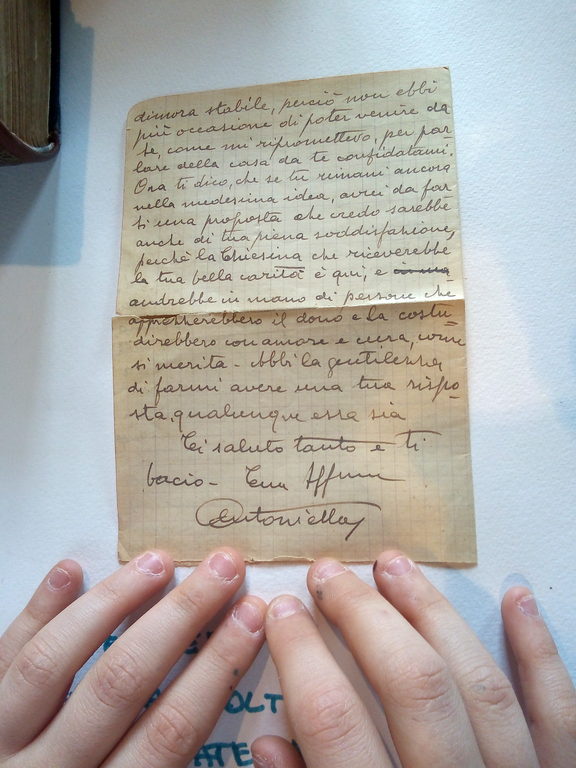 dimora stabile, perciò non ebbi
più occasione di poter venire da
te, come mi ripromettevo, per par
lare della cosa da te confidatami.
Ora ti dico, che se tu rimani ancora
nella medesima idea, avrei da far
ti una proposta che credo sarebbe
anche di tua piena soddisfazione,
perchè la Chiesina che riceverebbe
la tua bella carità è qui, e
andrebbe in mano di persone che
apprezzerebbero il dono e la costu=
direbbero con amore e cura, come
si merita - Abbi la gentilezza
di farmi avere una tua rispo=
sta, qualunque essa sia
Ti saluto tanto e ti
bacio - Tua Affma
Antonietta
OLT
ATE